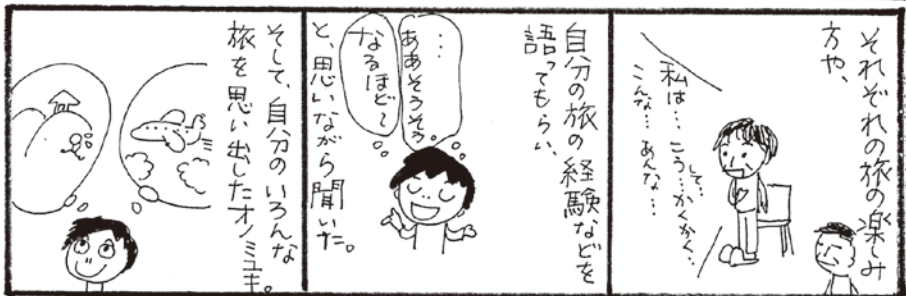 それぞれの旅の楽しみ
方や、
私は…こう…して…かくかく…
こんな…あんな…
自分の旅の経験などを
語ってもらい、
…
ああそうそう
なるほど〜
と、思いながら聞いた。
そして、自分のいろんな
旅を思い出したオノミユキ。